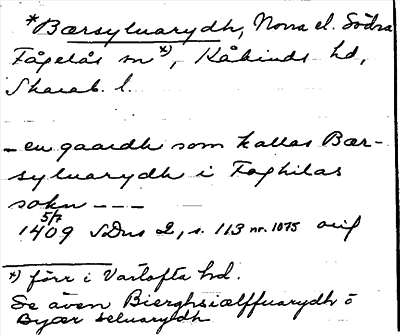 *Bærsyluarydh, Norra el. Södra
Fågelås sn *), Kåkinds hd,
Skarab. l.
– en gaardh som kallas Bær-
syluarydh i Foghilas
sokn – – –
5/7
1409 SDns 2, s. 113 nr. 1075 orig
*) förr i Vartofta hd.
Se även Bierghsiælffuarydh o
Byær seluarydh